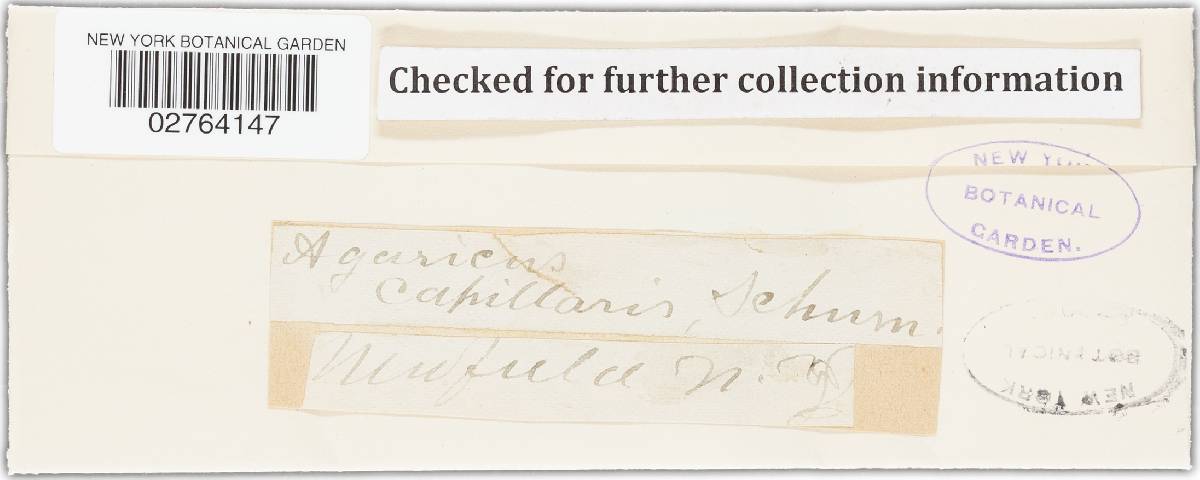 NEW YORK BOTANICAL GARDEN
02764147
Checked for further collection information
NEW YORK
BOTANICAL
GARDEN.
Agaricus
capillaris, Schum.
Newfield N. J.
BOTANICAL
NEW YORK